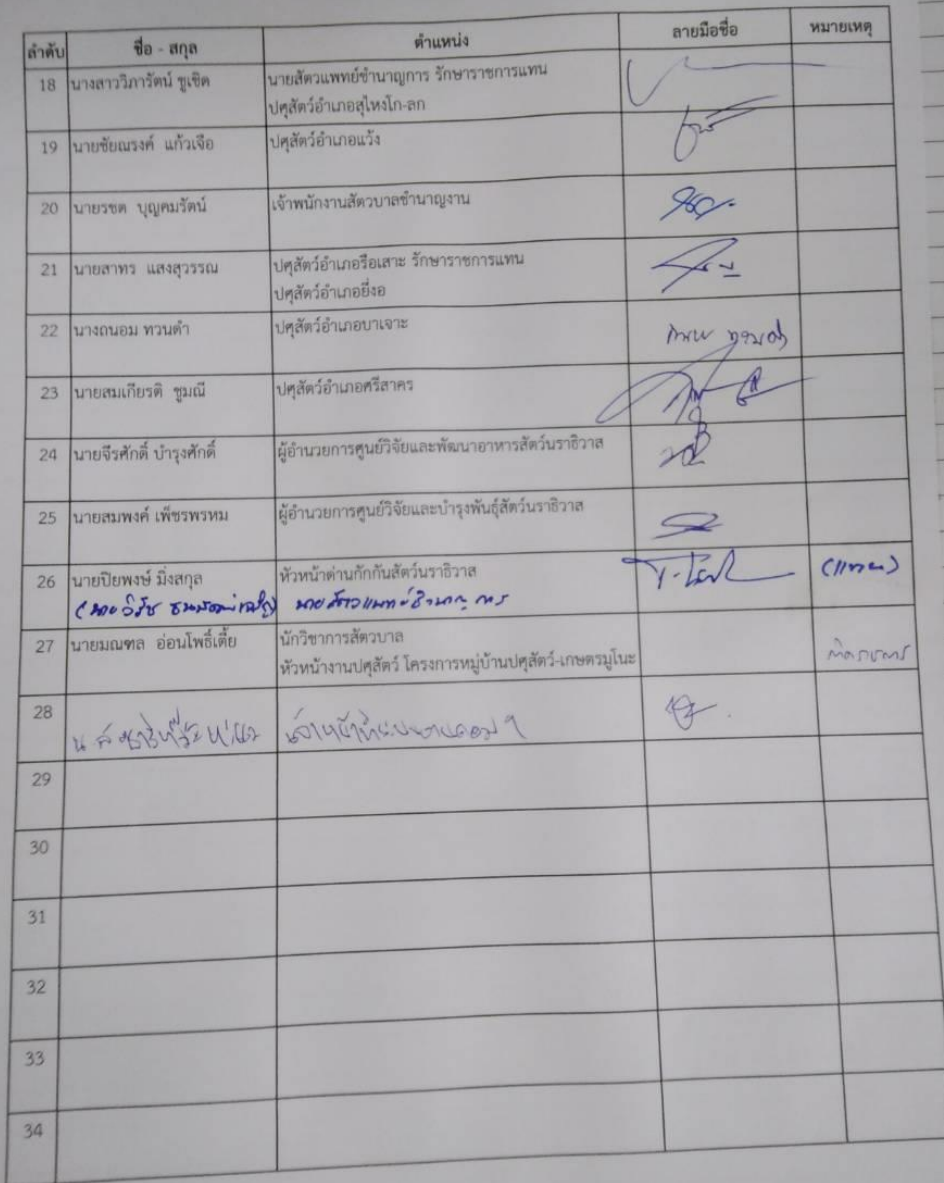 ลำดับ ชื่อ - สกุล ตำแหน่ง ลายมือชื่อ หมายเหตุ
18 นางสาววิภารัตน์ ชูเชิด นายสัตวแพทย์ชำนาญการ รักษาราชการแทน
ปศุสัตว์อำเภอสุไหงโก-ลก
19 นายชัยณรงค์ แก้วเจือ ปศุสัตว์อำเภอแว้ง
20 นายรชต บุญคมรัตน์ เจ้าพนักงานสัตวบาลชำนาญงาน
21 นายสาทร แสงสุวรรณ ปศุสัตว์อำเภอรือเสาะ รักษาราชการแทน
ปศุสัตว์อำเภอยี่งอ
22 นางถนอม ทวนดำ ปศุสัตว์อำเภอบาเจาะ ถนอม ทวนดำ
23 นายสมเกียรติ ชูมณี ปศุสัตว์อำเภอศรีสาคร
24 นายจีรศักดิ์ บำรุงศักดิ์ ผู้อำนวยการศูนย์วิจัยและพัฒนาอาหารสัตว์นราธิวาส
25 นายสมพงค์ เพ็ชรพรหม ผู้อำนวยการศูนย์วิจัยและบำรุงพันธุ์สัตว์นราธิวาส
26 นายปิยพงษ์ มิ่งสกุล หัวหน้าด่านกักกันสัตว์นราธิวาส (แทน)
(นาย นายสัตวแพทย์ชำนาญการ
27 นายมณฑล อ่อนโพธิ์เตี้ย นักวิชาการสัตวบาล ติดราชการ
หัวหน้างานปศุสัตว์ โครงการหมู่บ้านปศุสัตว์-เกษตรมูโนะ
28
29
30
31
32
33
34